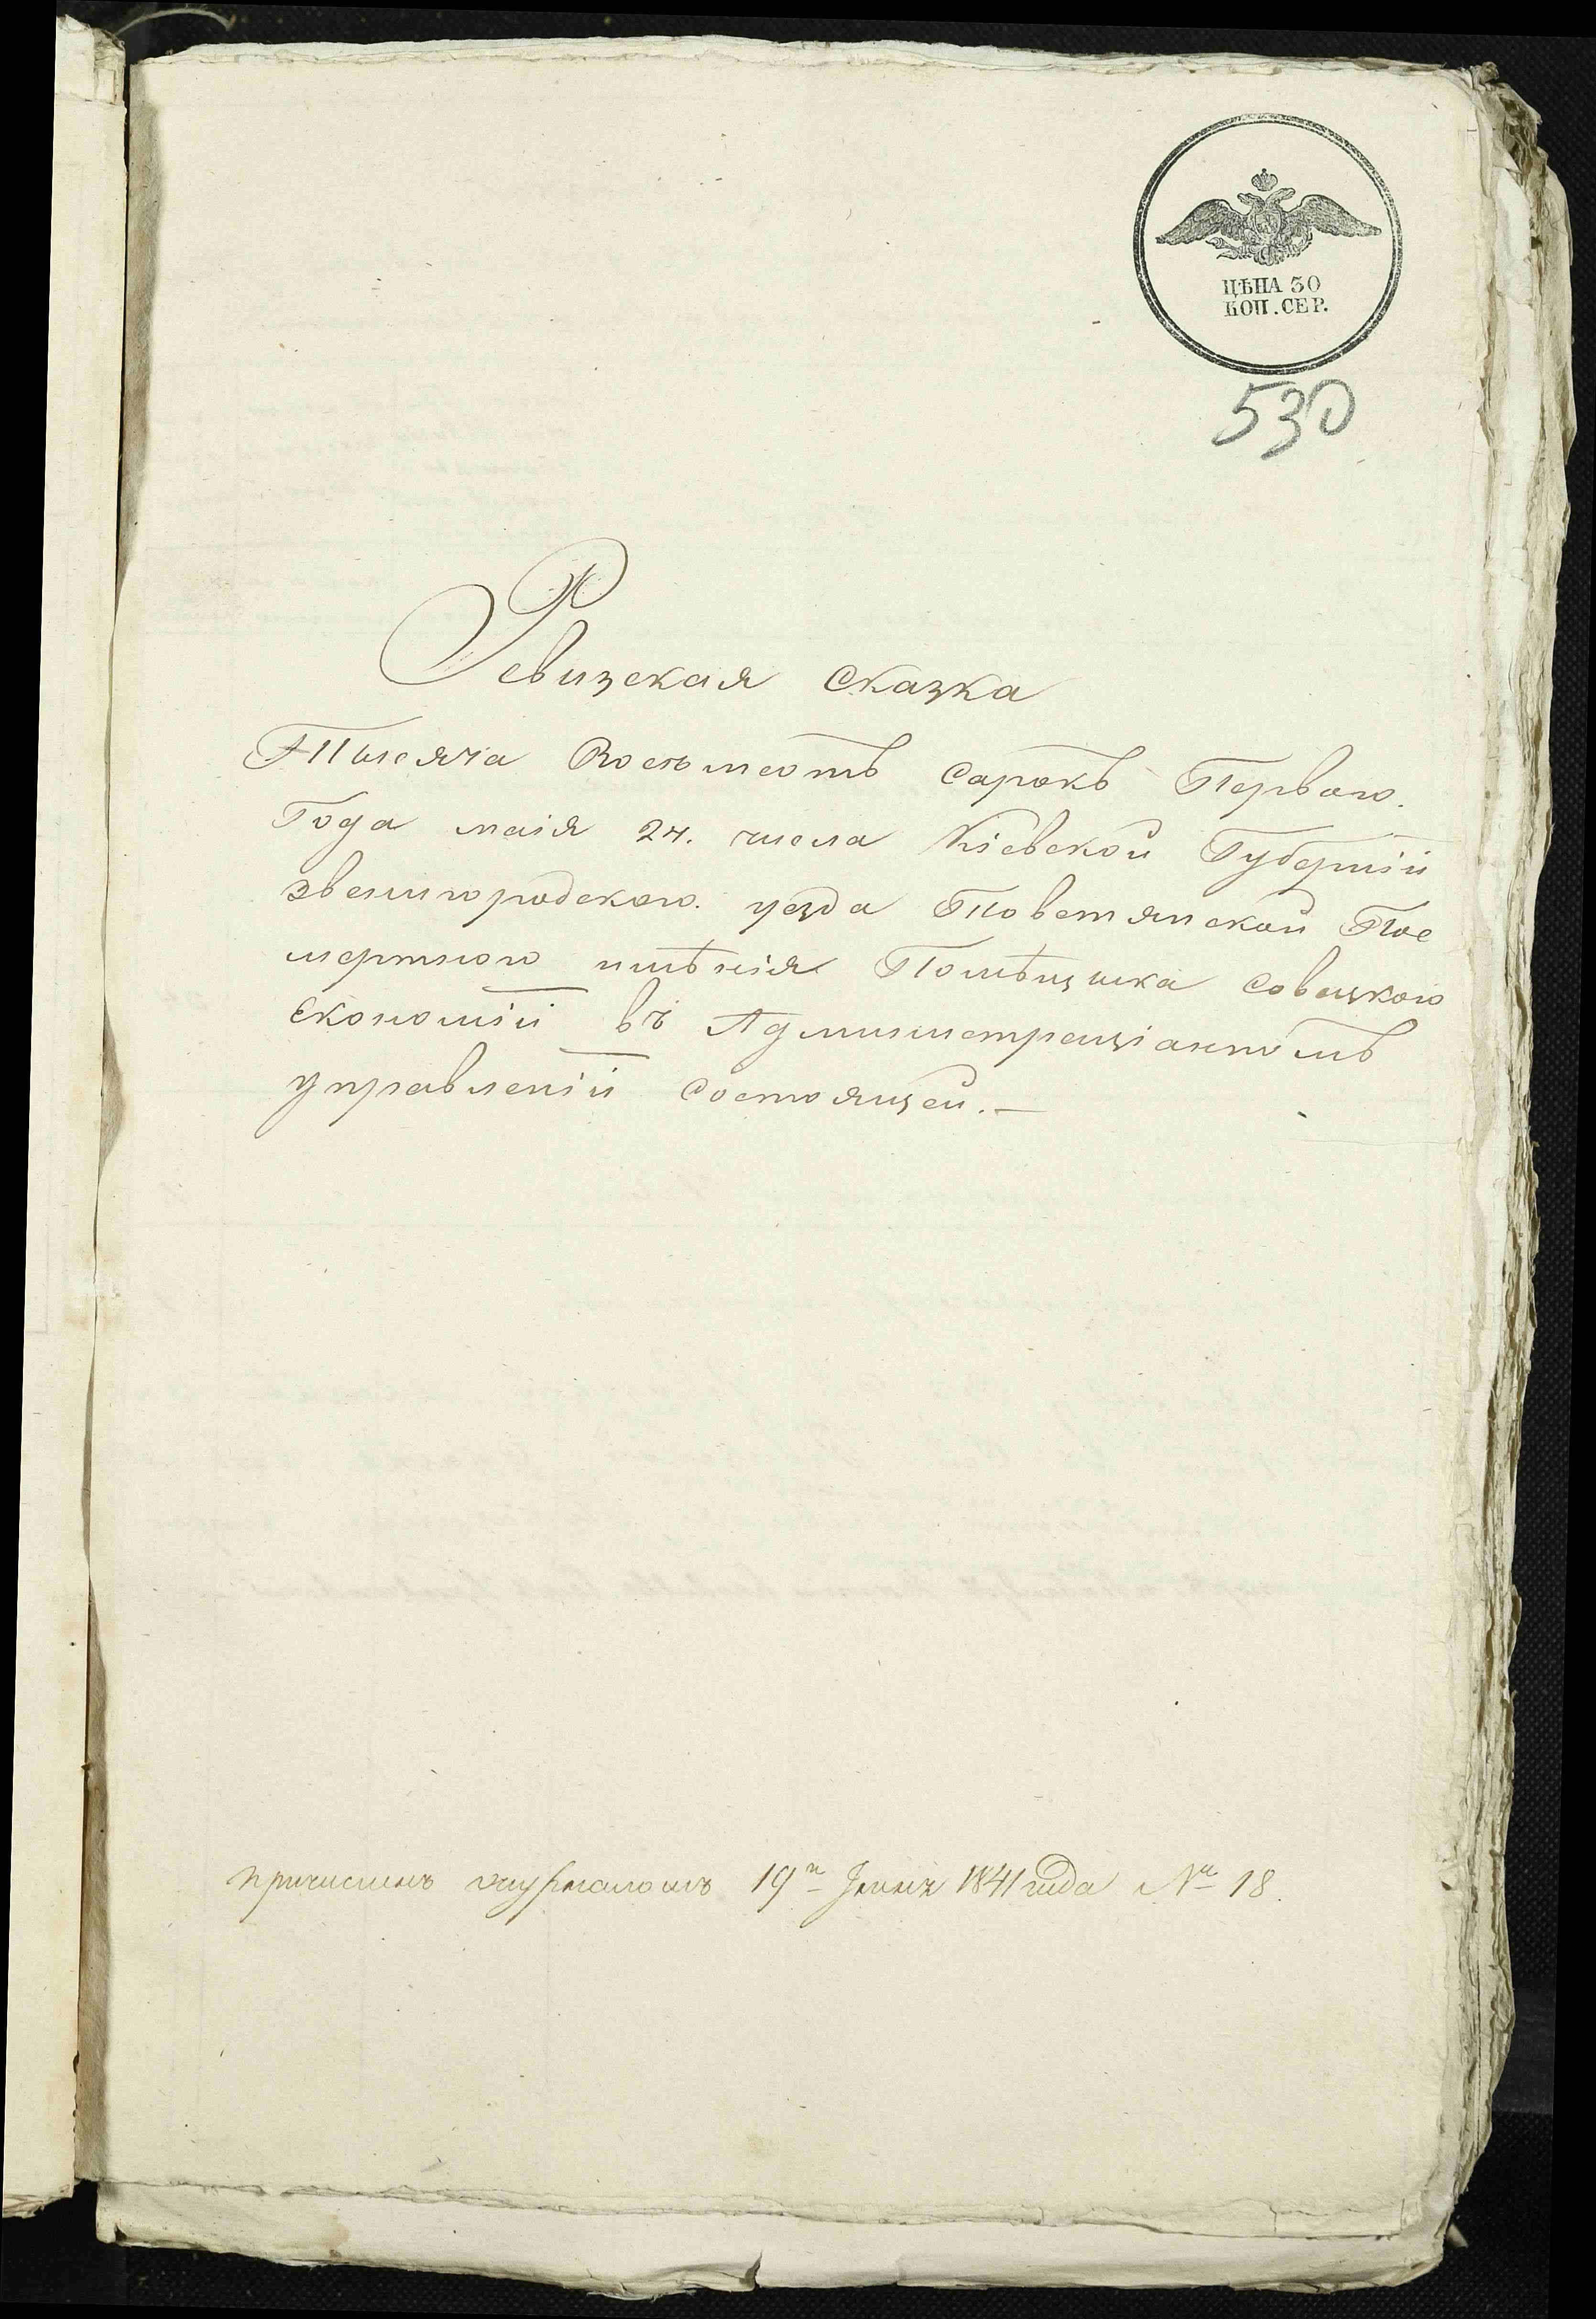 ЦѢНА 30
КОП. СЕР.
530
Ревизская сказка
Тысяча Восемьсотъ сарокъ Первого.
Года маія 24. числа Кіевской Губерніи
Звенигородского уезда Поветянской Пос
мертного имѣнія Помѣщика Совецкого
Економіи въ Администраціанномъ
управленіи состоящей.—
причисленъ журналомъ 19го Іюня 1841 года № 18.